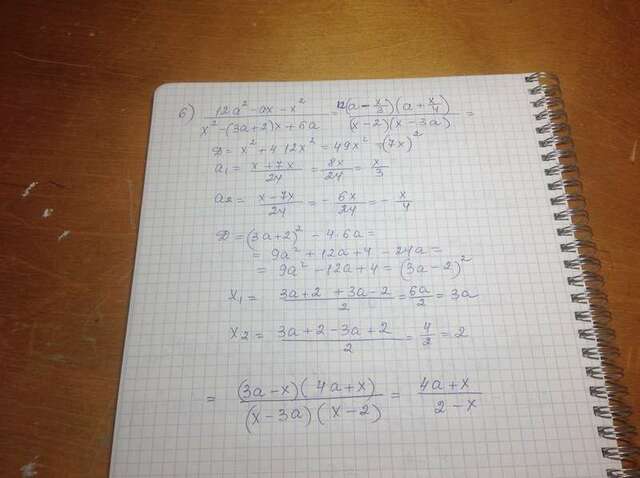 6) (12a² - ax - x²)/(x² - (3a+2)x + 6a) = 12(a - x/3)(a + x/4)/((x-2)(x-3a)) =
D = x² + 4·12x² = 49x² = (7x)²
a₁ = (x+7x)/24 = 8x/24 = x/3
a₂ = (x-7x)/24 = -6x/24 = -x/4
D = (3a+2)² - 4·6a =
= 9a² + 12a + 4 - 24a =
= 9a² - 12a + 4 = (3a-2)²
x₁ = (3a+2+3a-2)/2 = 6a/2 = 3a
x₂ = (3a+2-3a+2)/2 = 4/2 = 2
= (3a-x)(4a+x)/((x-3a)(x-2)) = (4a+x)/(2-x)